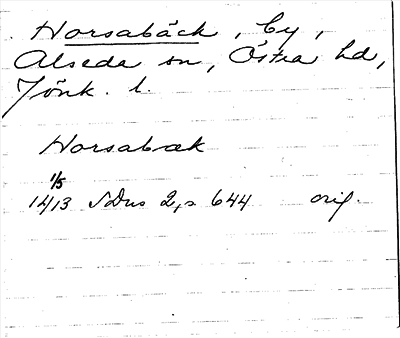 Horsabäck, by,
Alseda sn, Östra hd,
Jönk. l.
Horsabæk
1/5
1413 SDns 2, s 644 orig.